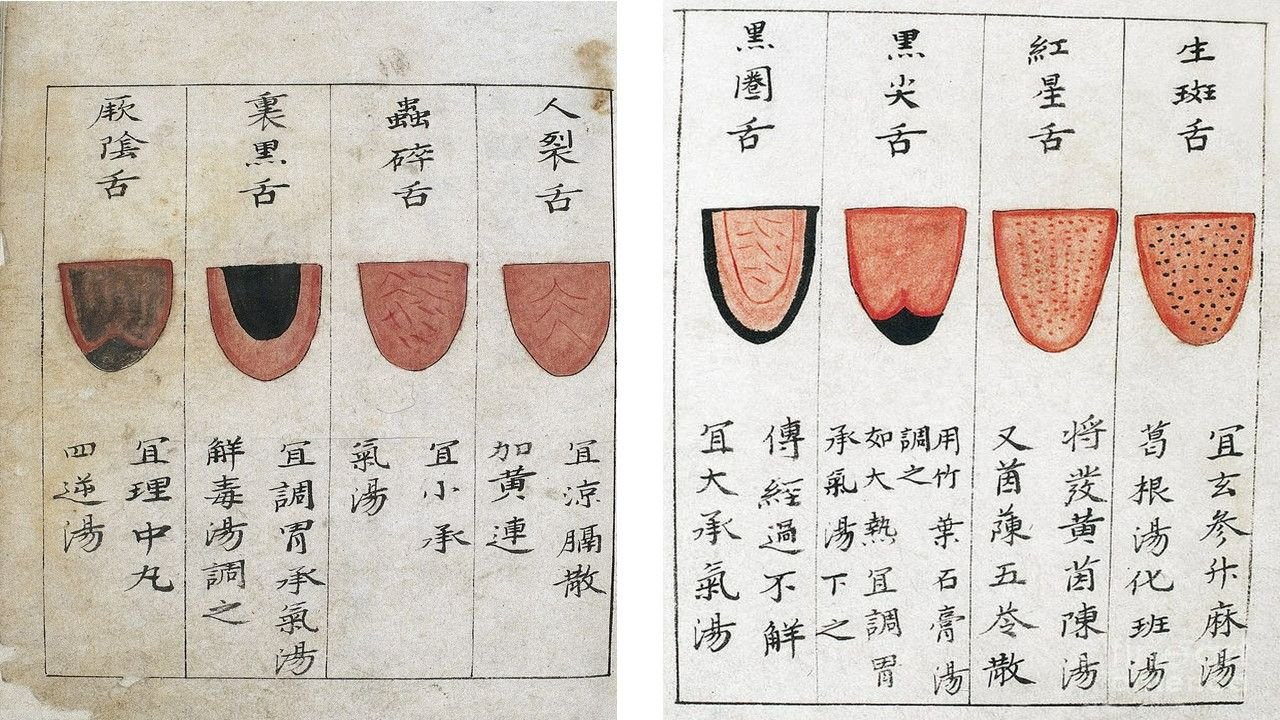 生斑舌
冝玄參升麻湯
葛根湯化班湯
紅星舌
将發黄茵陳湯
又茵蔯五苓散
黒尖舌
用竹葉石膏湯
調之
如大熱冝調胃
承氣湯下之
黒圈舌
傳經過不觧
冝大承氣湯
人裂舌
冝涼膈散
加黄連
蟲碎舌
冝小承
氣湯
裏黒舌
冝調胃承氣湯
觧毒湯調之
厥陰舌
冝理中丸
四逆湯